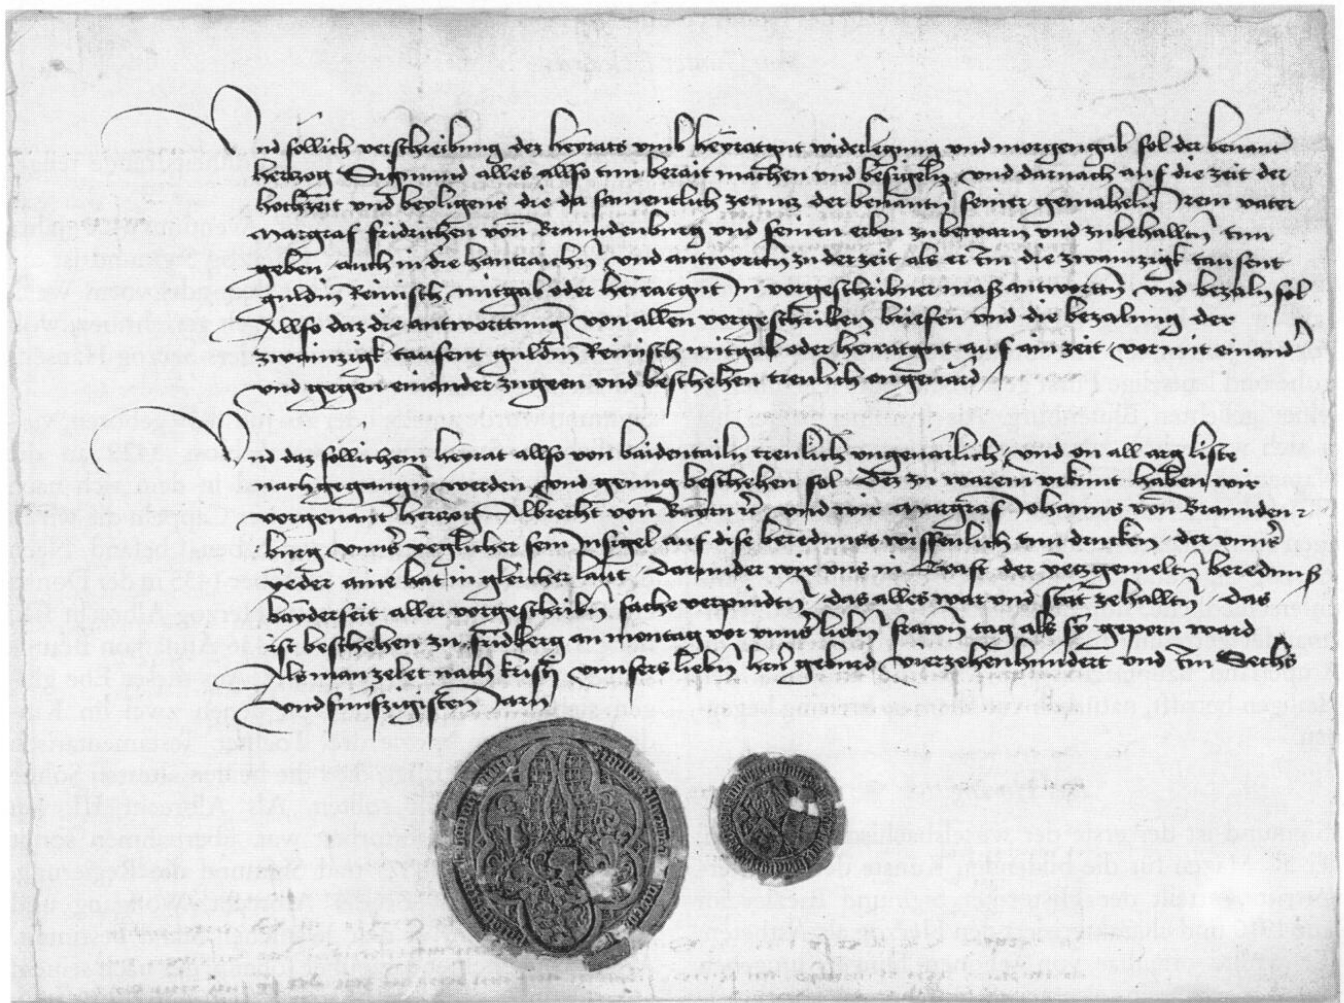 Und sollich verschreibung dez heyrats umb heyratgut widerlegung und morgengab sol der benant
herczog Sigmund alles allso tun berait machen und besigeln und darnach auf die zeit der
hochzeit und beyligens die da samentlich zenucz der benantn seiner gemaheln Irem vater
Margraf fridrichen von Branndenburg und seinen erben zubewarn und zubehalltn tun
geben auch in die hantraichn und antworttn zu der zeit als er Im die zwainzigk tausent
guldin Reinisch mitgab oder heiratgut In vorgeschribner maß antworttn und bezaln sol
Allso daz die antworttung von allen vorgeschriben briefen und die bezalung der
zwainzigk tausent guldin Reinisch mitgab oder heiratgut auf ain zeit vor mit einand
und gegen einander zugeen und beschehen treulich ongeuard
Und daz sollichem heyrat allso von baidentailn treulich ungeuarlich und on all arg liste
nachgegangn werden und genug beschehen sol Dez zu warem urkunt haben wir
vorgenant herczog Albrecht von Bayrn und wir Margraf Johanns von Brannden
burg unnser yeglicher sein Insigel auf dise berednuss wissenlich tun drucken der unnser
yeder aine hat in gleicher laut Darunder wir uns in kraft der yeczgemeltn berednuß
bayderseit aller vorgeschribn sache verpindtn das alles war und stat zehalltn das
ist beschehen zu fridberg an montag vor unnser liebn frawn tag als sy geporn ward
Als man zelet nach kristi unnsers liebn hern geburd vierzehenhundert und Im Sechs
und funfzigisten Jarn